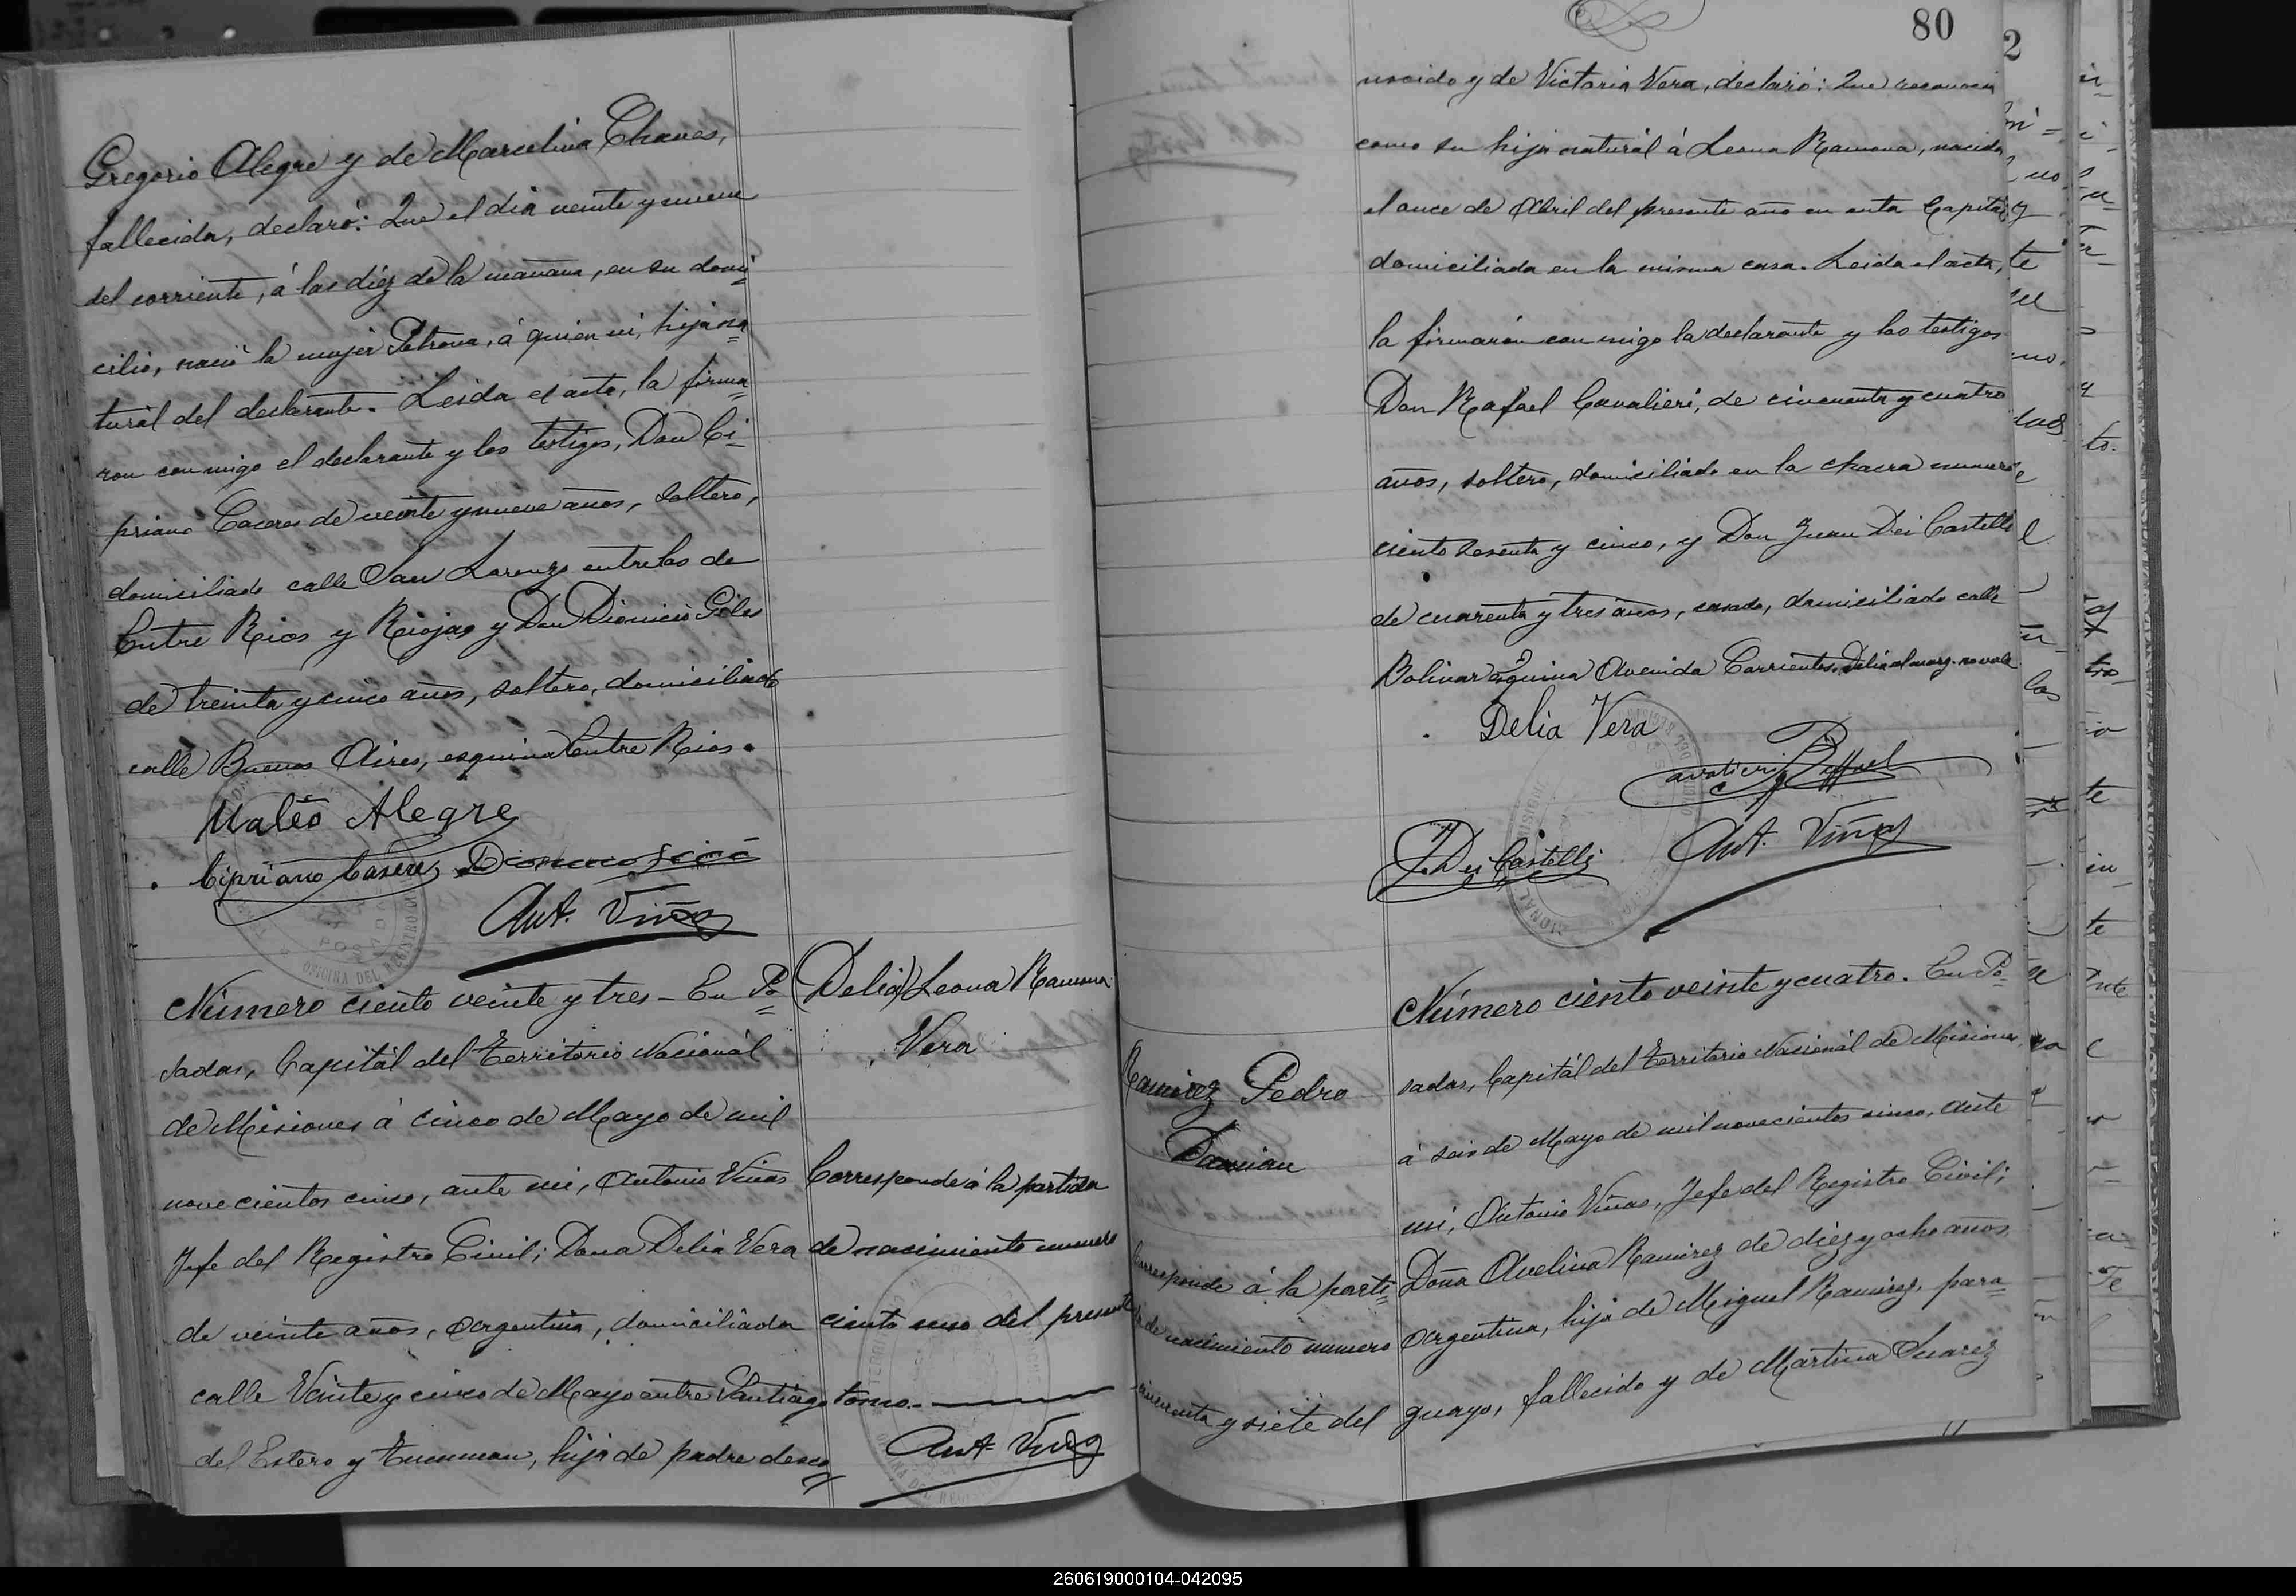 Gregorio Alegre y de Marcelina Chaves,
fallecida, declaró: Que el dia veinte y nueve
del corriente, á las diéz de la mañana, en su domi-
cilio, nació la mujer Petrona, á quien vi, hija na=
turál del declarante. Leida el acta, la firma=
ron con migo el declarante y los testigos, Don Ci=
priano Caceres de veinte y nueve años, soltero,
domiciliado calle San Lorenzo entre las de
Entre Rios y Rioja y Don Dionicio Giles
de treinta y cinco años, soltero, domiciliado
calle Buenos Aires, esquina Entre Rios.
Mateo Alegre
Cipriano Caseres
Ant. Viñas
Número ciento veinte y tres - En Po=
sadas, Capitál del Territorio Nacionál
de Misiones á cinco de Mayo de mil
novecientos cinco, ante mi, Antonio Viñas
Jefe del Registro Civil; Dona Delia Vera
de veinte años, Argentina, domiciliada
calle Veinte y cinco de Mayo entre Santiago
del Estero y Tucuman, hija de padre desco=
(Delia) Leona Ramona
Vera
Corresponde á la partida
de nacimiento numero
ciento uno del presente
tomo.-
Ant. Viñas
80
nocido y de Victoria Vera, declaró: Que reconocia
como su hija naturál á Leona Ramona, nacida
el once de Abril del presente año en esta Capital y
domiciliada en la misma casa. Leida el acta,
la firmarón con migo la declarante y los testigos
Don Rafael Cavalieri, de cincuenta y cuatro
años, soltero, domiciliado en la chacra numero
ciento sesenta y cinco, y Don Juan Dei Castelli
de cuarenta y tres años, casado, domiciliado calle
Bolivar esquina Avenida Corrientes. Delia al marg. no vale
Delia Vera
Cavalieri Raffael
J. Dei Castelli
Ant. Viñas
Número ciento veinte y cuatro. En Po=
sadas, Capitál del Territorio Nacionál de Misiones,
á seis de Mayo de mil novecientos cinco, ante
mi, Antonio Viñas, Jefe del Registro Civil;
Doña Avelina Ramirez de diez y ocho años,
Argentina, hija de Miguel Ramirez, para=
guayo, fallecido y de Martina Suarez
Ramirez Pedro
Damian
Corresponde á la parti=
da de nacimiento numero
cincuenta y siete del
260619000104-042095